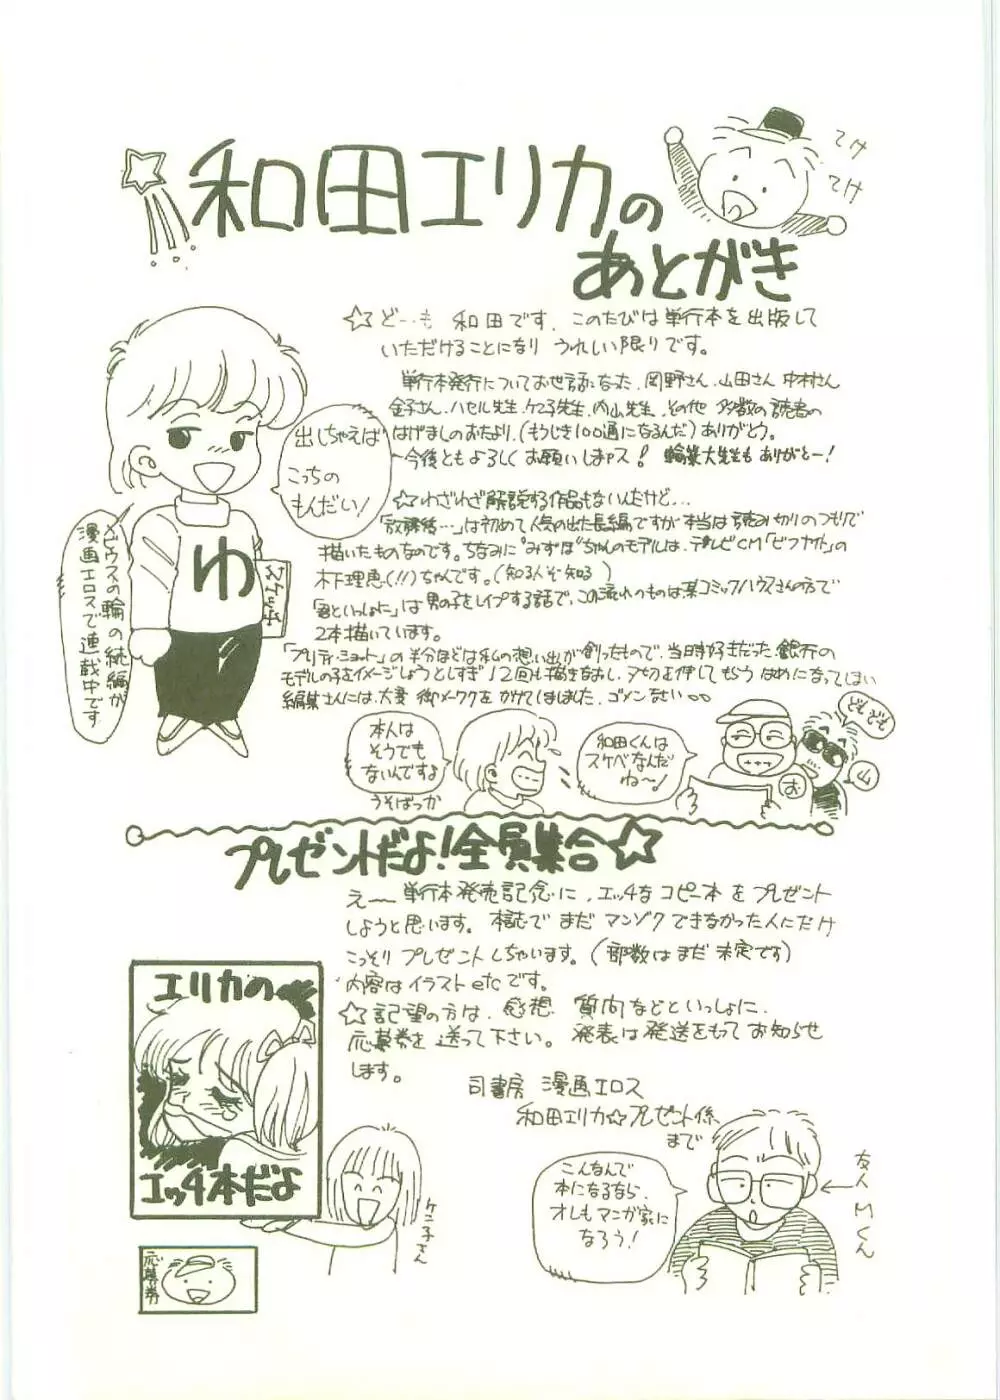 和田エリカの
あとがき
てけ
てけ
☆ど…も 和田です、このたびは単行本を出版して
いただけることになり うれしい限りです。
単行本発行についてお世話になった、岡野さん、山田さん 中村さん
金子さん、ハセル先生、ケニ子先生、内山先生、その他 多数の読者の
はげましのおたより、(もうじき100通になるんだ)ありがとう。
〜今後ともよろしく お願いしまァス! 輪業大先生も ありがとー!
出しちゃえば
こっちの
もんだい!
ゆ
スケッチ
メビウスの輪の続編が
漫画エロスで連載中です
☆わざわざ解説する作品もないんだけど…
「放課後…」は初めて人気の出た長編ですが本当は読み切りのつもりで
描いたものなのです。ちなみに"みずほ"ちゃんのモデルは、テレビCM「ビフナイト」の
木下理恵(!!)ちゃんです。(知る人ぞ知る)
「君といっしょに」は男の子をレイプする話で、この流れのものは某コミックハウスさんの方で
2本描いています。
「プリティ・ショット」の半分ほどは私の想い出が創ったもので、当時好きだった銀行の
モデルの子をイメージしようとしすぎ12回も描きなおし、アセりを伴してもらう はめになってしまい
編集さんには、大変 御メーワクを かけてしましました、ゴメンなさい
本人は
そうでも
ないんですよ
うそばっか
和田くんは
スケベなんだ
ね〜!
どもども
お
山
プレゼントだよ!全員集合☆
え〜 単行本発売記念に、エッチな コピー本 を プレゼント
しようと思います。本誌で まだ マンゾク できなかった人にだけ
こっそり プレゼント しちゃいます。(部数は まだ 未定です)
内容は イラスト etc です。
☆記望の方は、感想 質問などといっしょに、
応募券を 送って下さい。 発表は 発送をもって お知らせ
します。
司書房 漫画エロス
和田エリカ☆プレゼント係
まで
エリカの
エッチ本だよ
ケニ子さん
こんなんで
本になるなら、
オレもマンガ家に
なろう!
友人Mくん
応募券